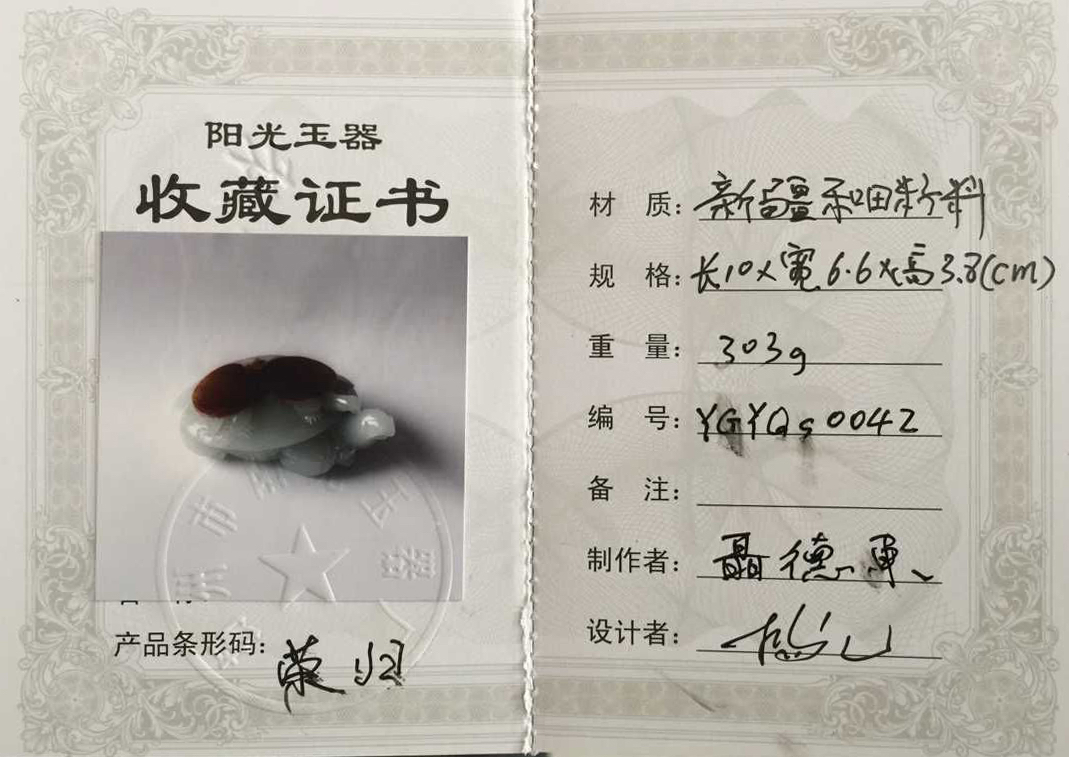 阳光玉器
收藏证书
产品条形码：荣归
材 质：新疆和田籽料
规 格：长10×宽6.6×高3.8(cm)
重 量：303g
编 号：YGYQs0042
备 注：
制作者：聶德軍
设计者：
州市